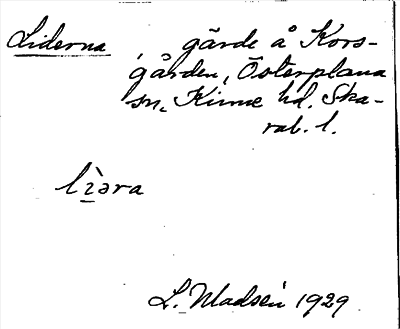 Liderna, gärde å Kors-
gården, Österplana
sn, Kinne hd. Ska-
rab. l.
lìəra
L. Madsén 1929